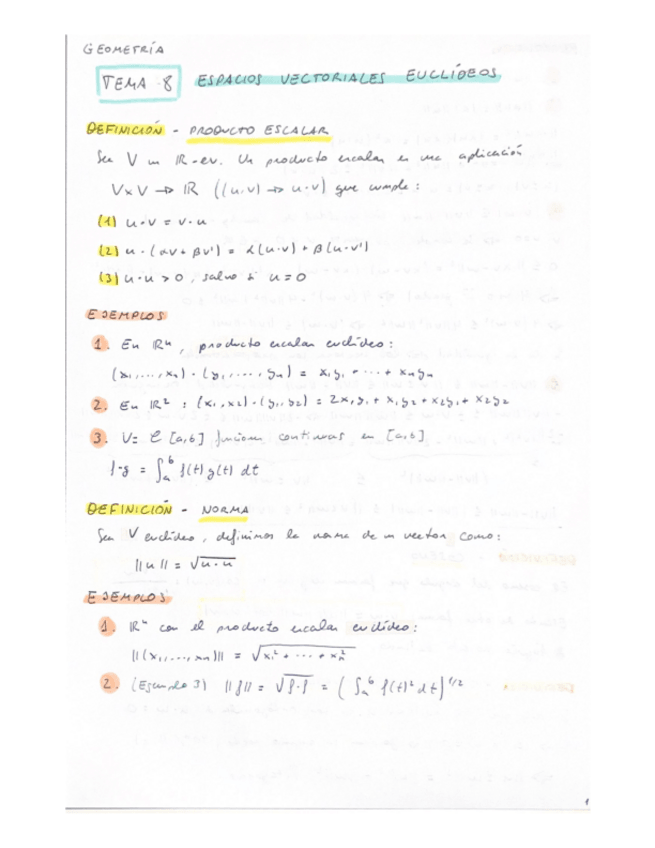 GEOMETRÍA
TEMA 8 ESPACIOS VECTORIALES EUCLÍDEOS
DEFINICIÓN - PRODUCTO ESCALAR
Sea V un IR-ev. Un producto escalar es una aplicación
V×V → IR ((u,v) → u·v) que cumple:
(1) u·v = v·u
(2) u·(αv + βv') = α(u·v) + β(u·v')
(3) u·u > 0, salvo si u=0
EJEMPLOS
1. En IRⁿ, producto escalar euclídeo:
(x₁,...,xₙ)·(y₁,...,yₙ) = x₁y₁ + ... + xₙyₙ
2. En IR²: (x₁,x₂)·(y₁,y₂) = 2x₁y₁ + x₁y₂ + x₂y₁ + x₂y₂
3. V = C [a,b] funciones continuas en [a,b]
f·g = ∫ₐᵇ f(t)g(t) dt
DEFINICIÓN - NORMA
Sea V euclídeo, definimos la norma de un vector como:
||u|| = √u·u
EJEMPLOS
1. IRⁿ con el producto escalar euclídeo:
||(x₁,...,xₙ)|| = √x₁² + ... + xₙ²
2. (Ejemplo 3) ||f|| = √f·f = (∫ₐᵇ f(t)² dt)^1/2
1